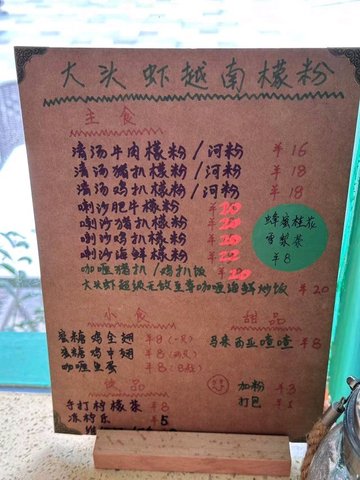 大头虾越南檬粉
主食
清汤牛肉檬粉/河粉 ¥16
清汤猪扒檬粉/河粉 ¥18
清汤鸡扒檬粉/河粉 ¥18
喇沙肥牛檬粉 ¥20
喇沙猪扒檬粉 ¥20
喇沙鸡扒檬粉 ¥20
喇沙海鲜檬粉 ¥22
咖喱猪扒/鸡扒饭 ¥20
大头虾超级无敌至尊咖喱海鲜炒饭 ¥20
蜂蜜桂花
雪梨茶
¥8
小食
蜜糖鸡全翅 ¥8(一只)
蜜糖鸡中翅 ¥8(两只)
咖喱鱼蛋 ¥8
甜品
马来西亚喳喳 ¥8
饮品
手打柠檬茶 ¥8
冻柠乐 ¥5
加粉 ¥3
打包